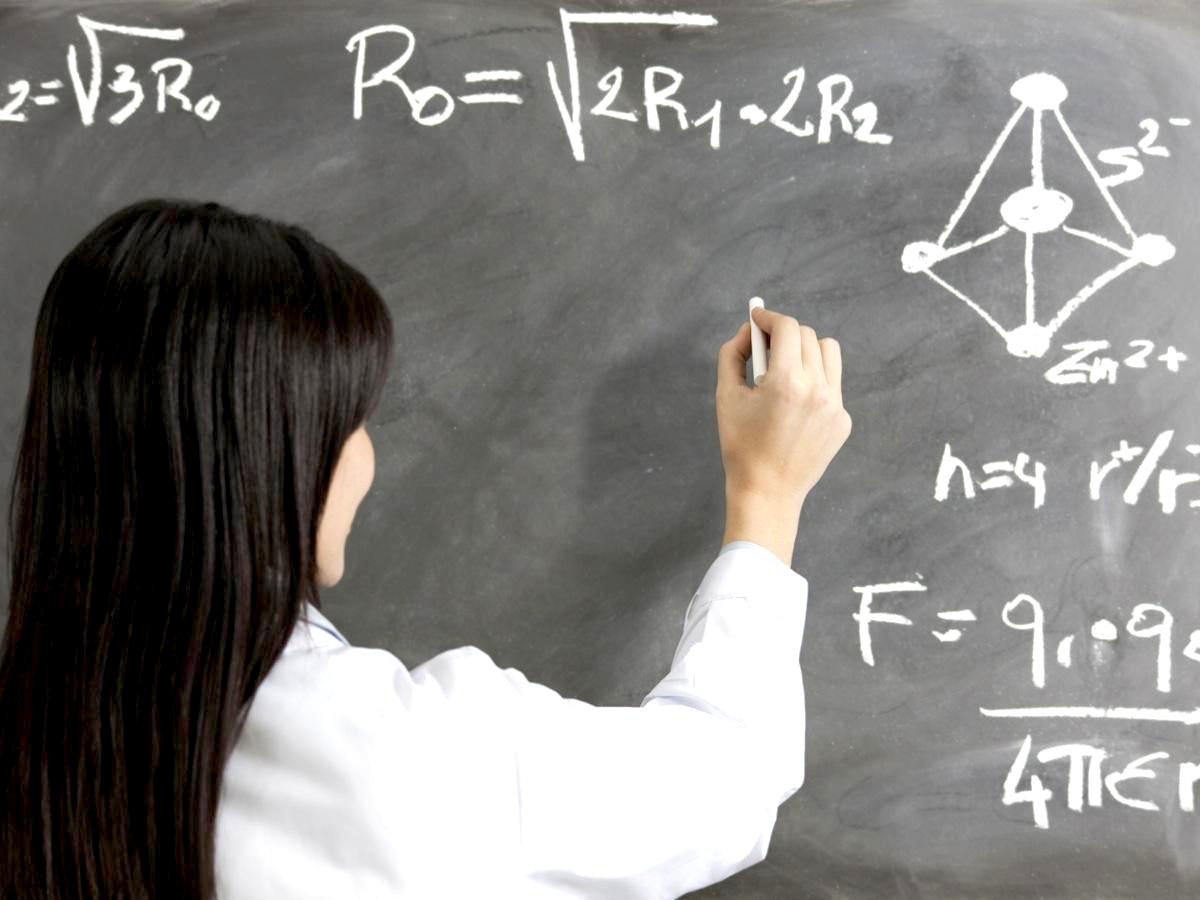 2=√3R₀ R₀=√2R₁·2R₂
S²⁻
Zn²⁺
n=4 r⁺/r⁻
F=q₁·q₂
4πεr